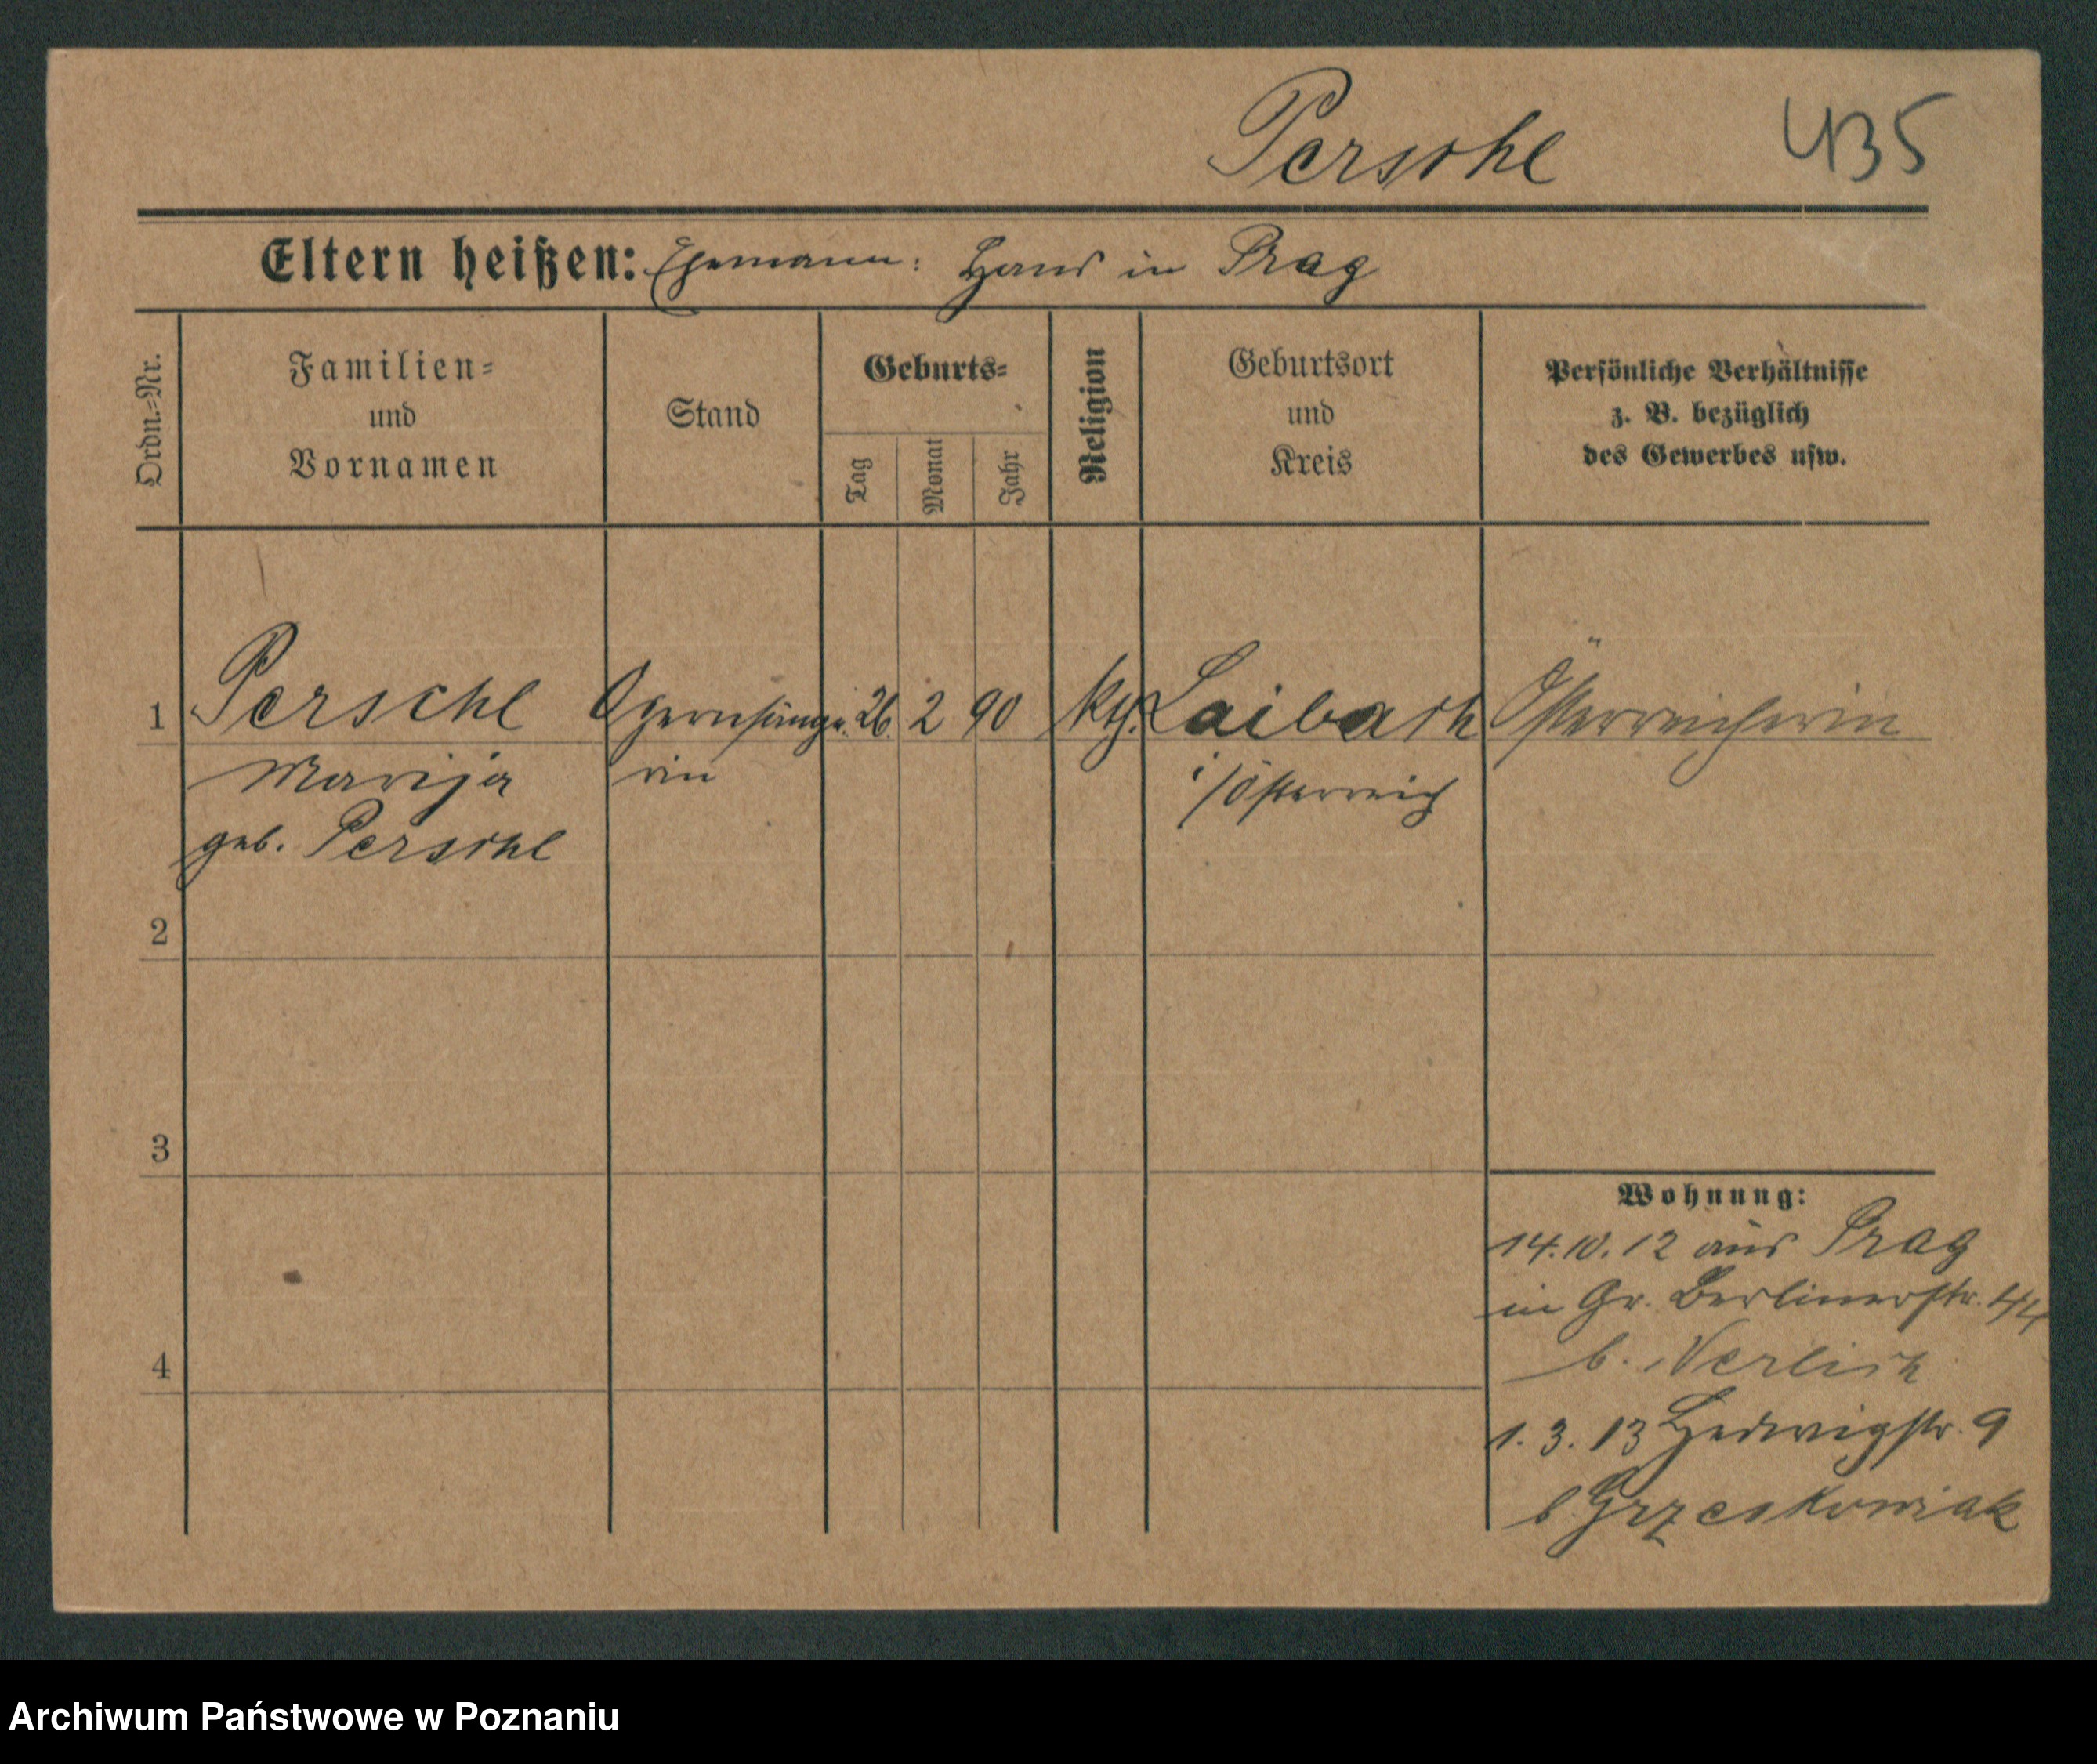 Perschl 435
Eltern heißen: Ehemann: Hans in Prag
Ordn.-Nr.
Familien-
und
Vornamen
Stand
Geburts-
Tag
Monat
Jahr
Religion
Geburtsort
und
Kreis
Persönliche Verhältnisse
z. B. bezüglich
des Gewerbes usw.
1 Perschl Opernsänge- 26 2 90 kth. Laibach Österreicherin
Marija rin i/Österreich
geb. Perschl
2
3
Wohnung:
14.10.12 aus Prag
in Gr. Berlinerstr. 44
4
b. Verlich
1. 3. 13 Hedwigstr. 9
b. Grzeskowiak
Archiwum Państwowe w Poznaniu